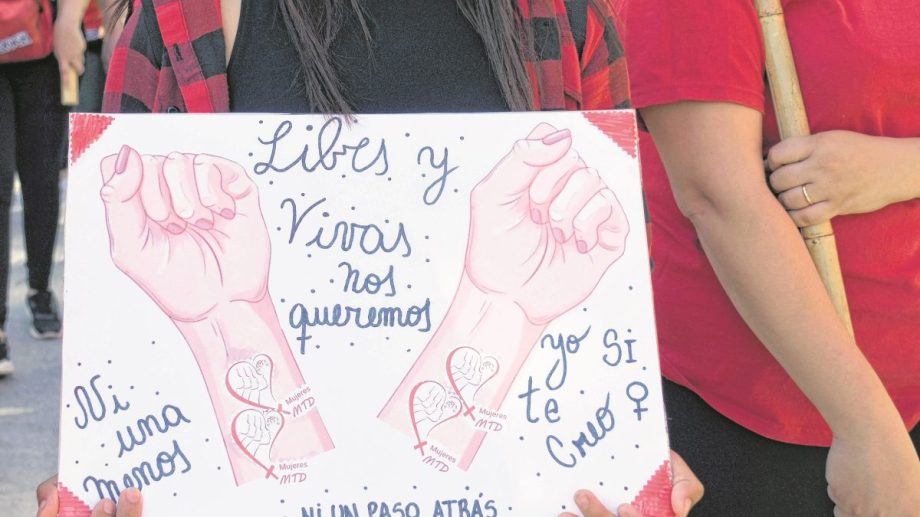 Libres y
Vivas
nos
queremos
Ni
una
menos
yo SI
te
Creo
Mujeres
MTD
Mujeres
MTD
Mujeres
MTD
Mujeres
MTD
NI UN PASO ATRÁS